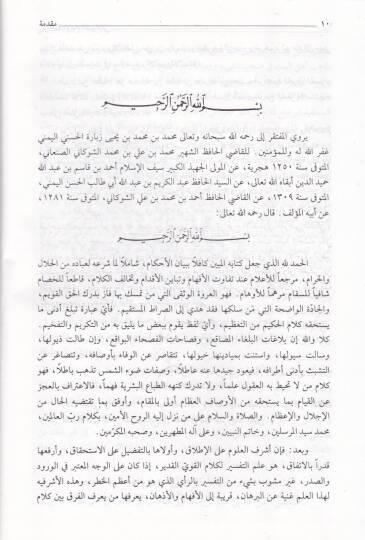 ١٠ مقدمة
بسم الله الرحمن الرحيم
يروي المفتقر إلى رحمه الله سبحانه وتعالى محمد بن محمد بن يحيى زبارة الحسني اليمني
غفر الله له وللمؤمنين. للقاضي الحافظ الشهير محمد بن علي بن محمد الشوكاني الصنعاني،
المتوفى سنة ١٢٥٠ هجرية، عن المولى الجهبذ الكبير سيف الإسلام أحمد بن قاسم بن عبد الله
حميد الدين أبقاه الله تعالى، عن السيد الحافظ عبد الكريم بن عبد الله أبي طالب الحسن اليمني،
المتوفى سنة ١٣٠٩، عن القاضي الحافظ أحمد بن محمد بن علي الشوكاني، المتوفى سنة ١٢٨١
عن أبيه المؤلف. قال رحمه الله تعالى:
بسم الله الرحمن الرحيم
الحمد لله الذي جعل كتابه المبين كافلاً ببيان الأحكام، شاملاً لما شرعه لعباده من الحلال
والحرام، مرجعاً للأعلام عند تفاوت الأفهام وتباين الأقدام وتخالف الكلام، قاطعاً للخصام
شافياً للسقام مرهماً للأوهام. فهو العروة الوثقى التي من تمسك بها فاز بدرك الحق القويم،
والجادّة الواضحة التي من سلكها فقد هدي إلى الصراط المستقيم. فأيّ عبارة تبلغ أدنى ما
يستحقه كلام الحكيم من التعظيم، وأيّ لفظ يقوم ببعض ما يليق به من التكريم والتفخيم.
كلا والله إن بلاغات البلغاء المصاقع، وفصاحات الفصحاء البواقع، وإن طالت ذيولها،
وسالت سيولها، واستنت بميادينها خيولها، تتقاصر عن الوفاء بأوصافه، وتتصاغر عن
التشبث بأدنى أطرافه، فيعود جيدها عنه عاطلاً، وصفات ضوء الشمس تذهب باطلاً، فهو
كلام من لا تحيط به العقول علماً، ولا تدرك كنهه الطباع البشرية فهماً، فالاعتراف بالعجز
عن القيام بما يستحقه من الأوصاف العظام أولى بالمقام، وأوفق بما تقتضيه الحال من
الإجلال والإعظام. والصلاة والسلام على من نزل إليه الروح الأمين، بكلام ربّ العالمين،
محمد سيد المرسلين، وخاتم النبيين، وعلى آله المطهرين، وصحبه المكرّمين.
وبعد: فإن أشرف العلوم على الإطلاق، وأولاها بالتفضيل على الاستحقاق، وأرفعها
قدراً بالاتفاق، هو علم التفسير لكلام القويّ القدير، إذا كان على الوجه المعتبر في الورود
والصدر، غير مشوب بشيء من التفسير بالرأي الذي هو من أعظم الخطر، وهذه الأشرفية
لهذا العلم غنية عن البرهان، قريبة إلى الأفهام والأذهان، يعرفها من يعرف الفرق بين كلام